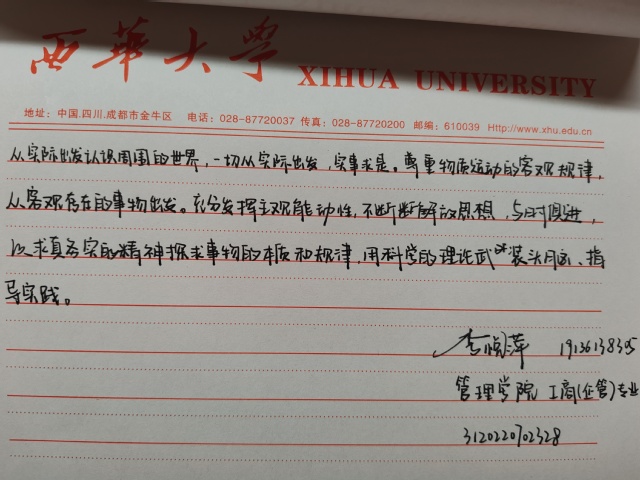 西華大學 XIHUA UNIVERSITY
地址：中国.四川.成都市金牛区 电话：028-87720037 传真：028-87720200 邮编：610039 Http://www.xhu.edu.cn
从实际出发认识周围的世界，一切从实际出发，实事求是。尊重物质运动的客观规律，
从客观存在的事物出发。充分发挥主观能动性，不断断解放思想，与时俱进，
以求真务实的精神探求事物的本质和规律，用科学的理论武装头脑、指
导实践。
李 萍 19136138395
管理学院 工商(企管)专业
3120220702328